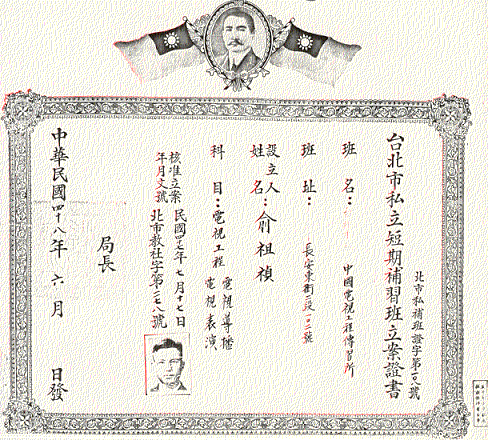 台北市私立短期補習班立案證書
北市私補班證字第一〇八號
班名：
中國電視工程傳習所
班址：
長安東街二段一〇二號
設立人姓名：俞祖禎
科目：電視工程 電視導播 電視表演
核准立案年月文號
民國四七年七月十七日
北市教社字第二七八號
局長
中華民國四十八年六月 日發